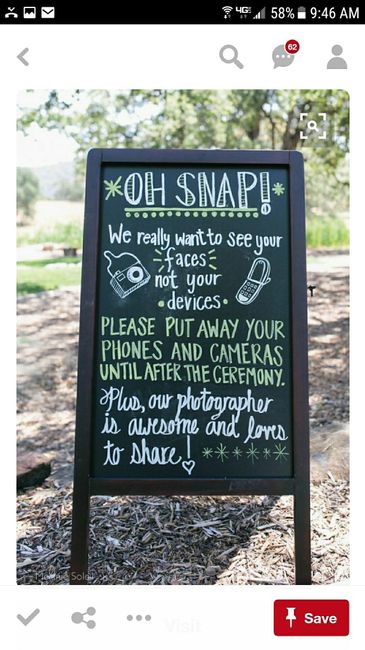 4G
58%
9:46 AM
62
OH SNAP!
We really want to see your
faces
not your
devices
PLEASE PUT AWAY YOUR
PHONES AND CAMERAS
UNTIL AFTER THE CEREMONY.
Plus, our photographer
is awesome and loves
to share!
Visit
Save